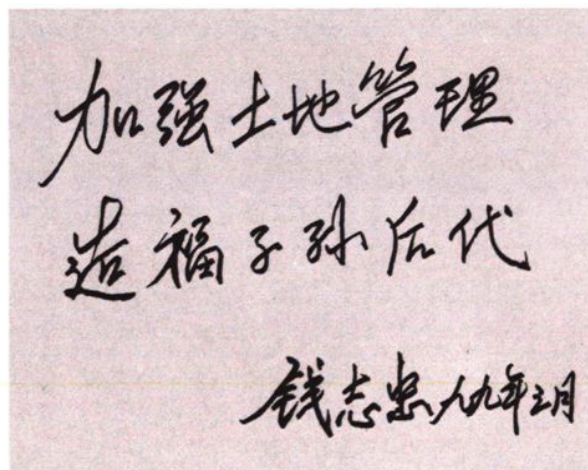 加强土地管理
造福子孙后代
钱志忠 八九年三月